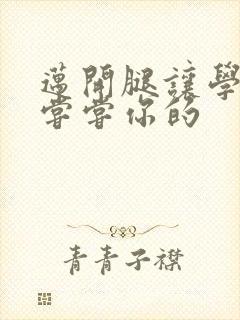 邁開腿讓學
嘗嘗你的
青青子襟